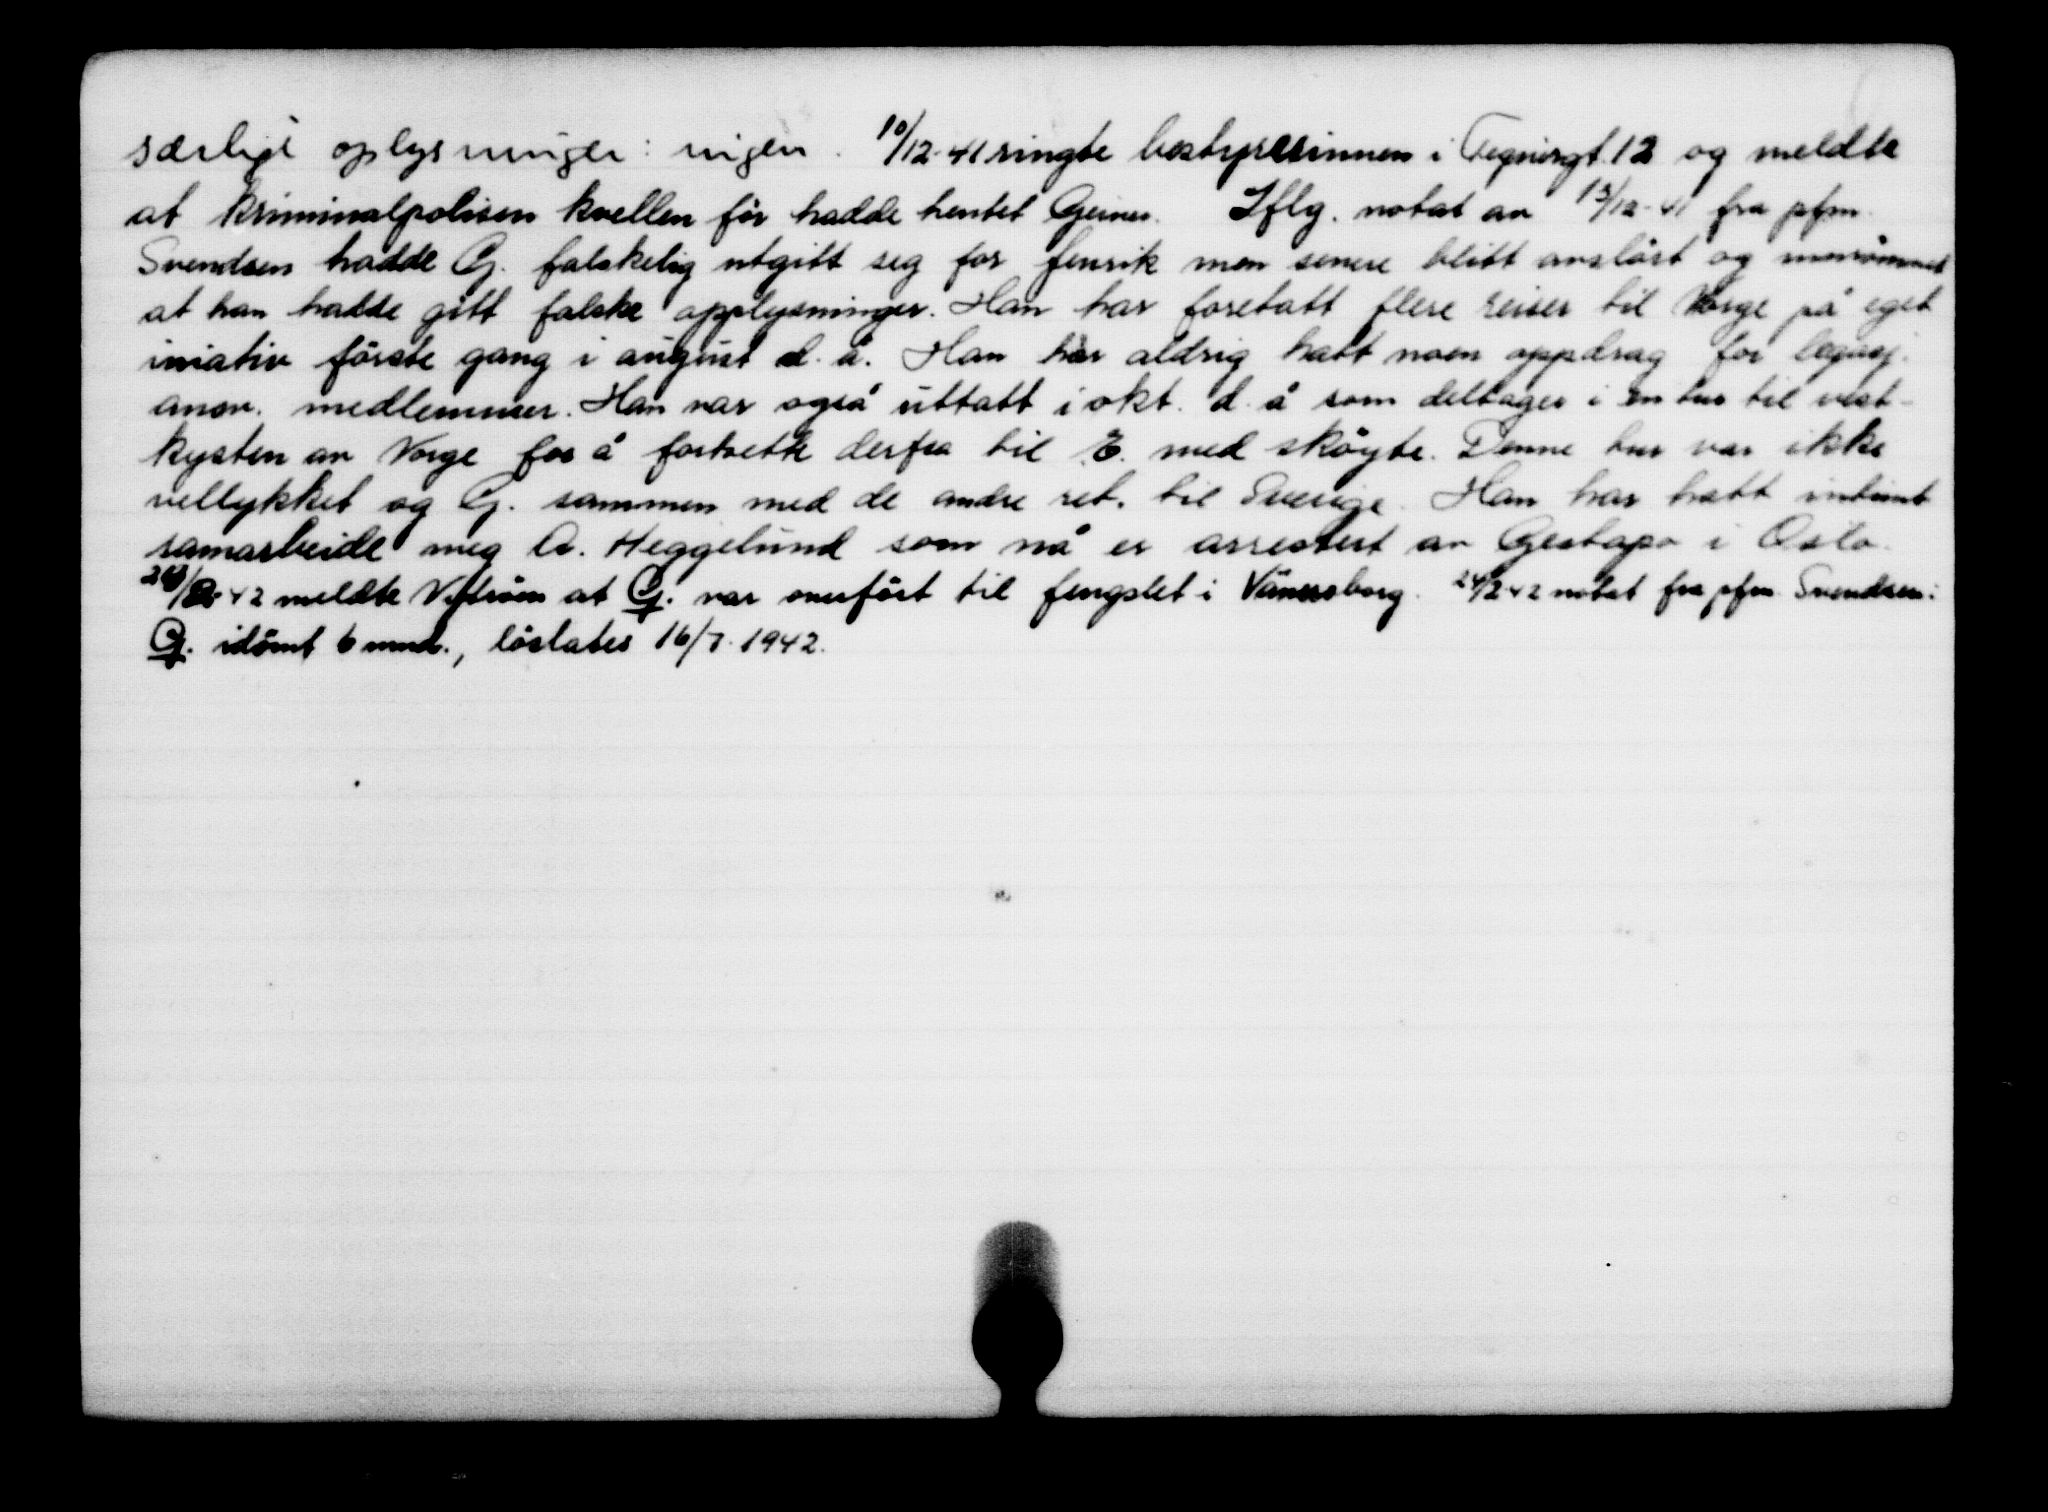 særlige oplysninger: ingen. 10/12-41 ringte bestyrerinnen i Tegnérgt. 12 og meldte
at kriminalpolisen kvellen för hadde hentet Geiner. Iflg. notat av 13/12-41 fra pfm.
Svendsen hadde G. falskelig utgitt seg for fenrik men senere blitt avslört og innrömmet
at han hadde gitt falske opplysninger. Han har foretatt flere reiser til Norge på eget
iniativ förste gang i august d. å. Han har aldrig hatt noen oppdrag for legasj.
anov. medlemmer. Han var også uttatt i okt. d. å som deltager i en tur til vest-
kysten av Norge for å fortsette derfra til E. med sköyte. Denne tur var ikke
vellykket og G. sammen med de andre ret. til Sverige. Han har hatt intimt
samarbeide meg A. Heggelund som nå er arrestert av Gestapo i Oslo.
42 meldte at G. var overfört til fengslet i Vänersborg. 24/2-42 notat fra pfm. Svendsen:
G. idömt 6 mnd., löslates 16/7. 1942.